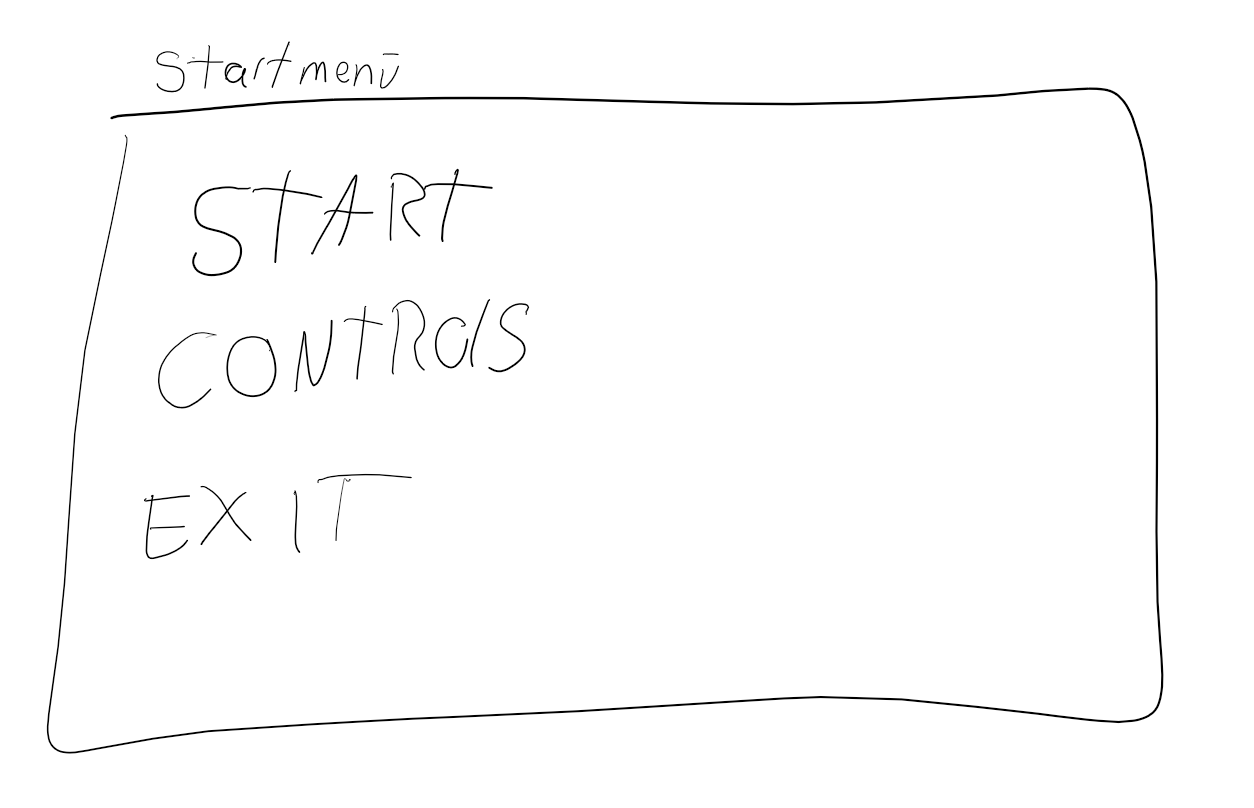 Startmenü
START
CONTROlS
EXIT